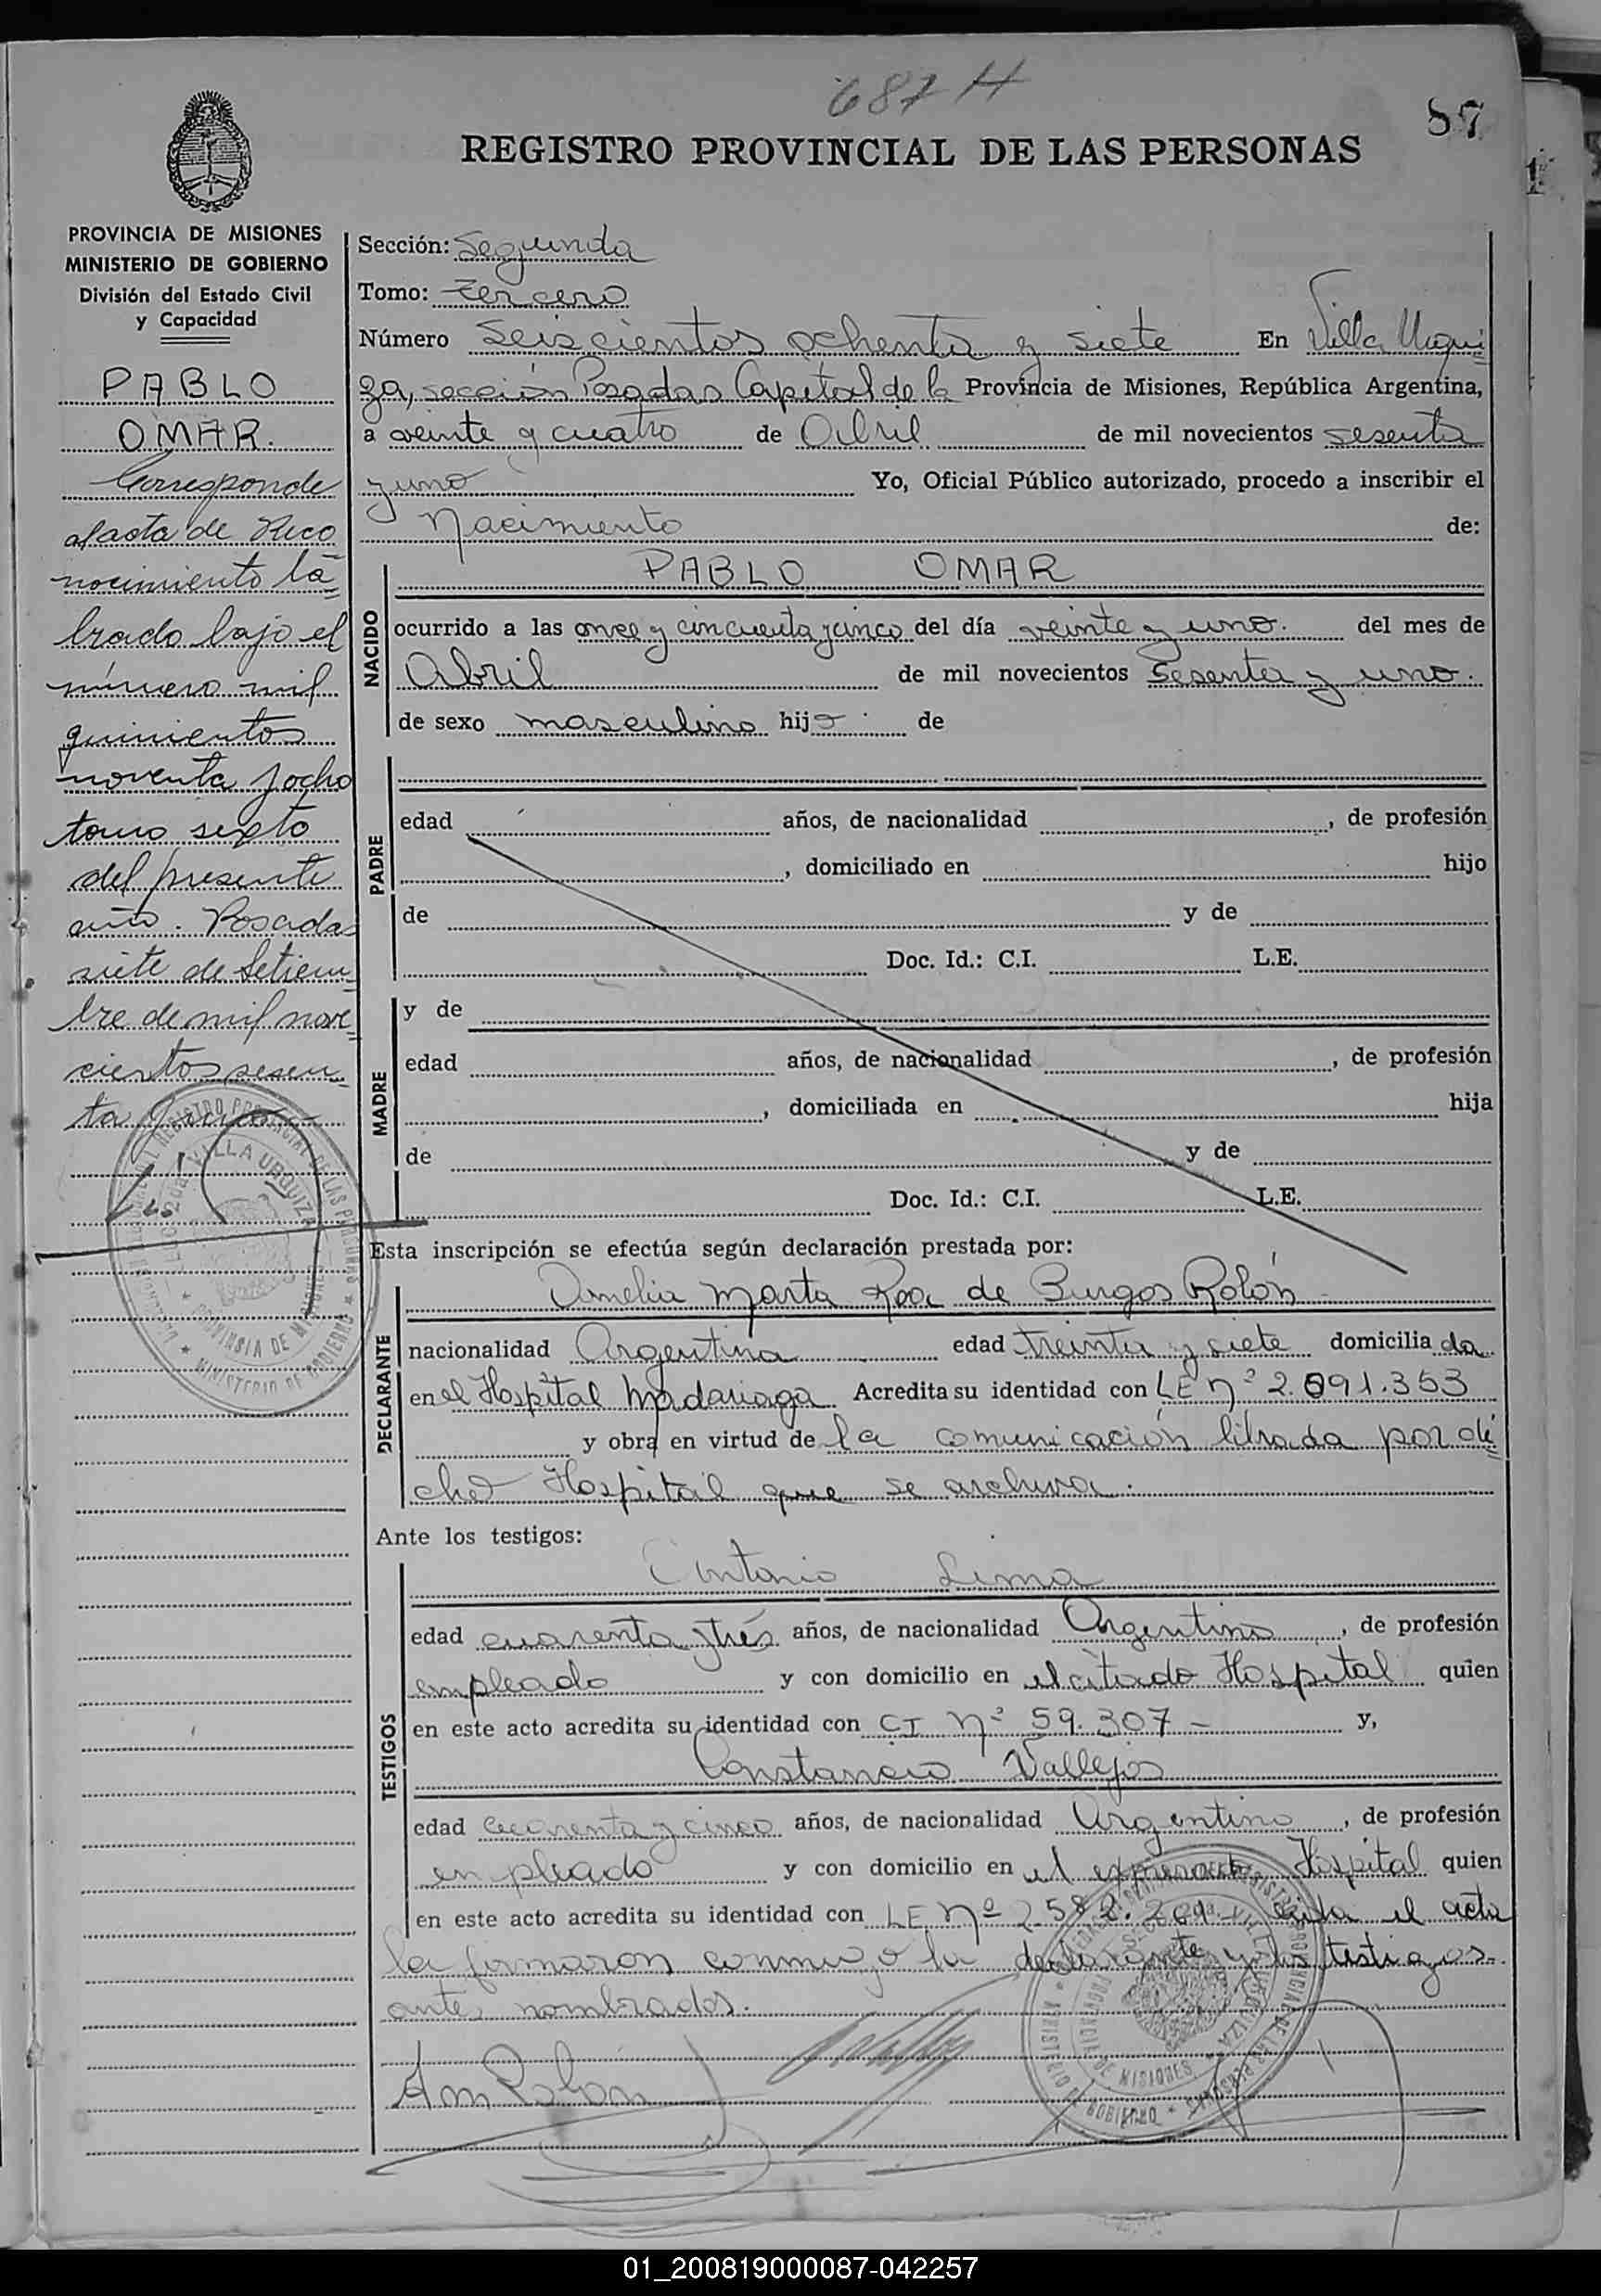 687 H
87
REGISTRO PROVINCIAL DE LAS PERSONAS
PROVINCIA DE MISIONES
MINISTERIO DE GOBIERNO
División del Estado Civil
y Capacidad
PABLO
OMAR.
Corresponde
al acta de Reco
nocimiento la=
brado bajo el
número mil
quinientos
noventa y ocho
tomo sexto
del presente
año. Posadas
siete de Setiem=
bre de mil nove=
cientos sesen=
ta y uno
Sección: Segunda
Tomo: Tercero
Número Seiscientos ochenta y siete En Villa Urqui=
za, sección Posadas Capital de la Provincia de Misiones, República Argentina,
a veinte y cuatro de Abril de mil novecientos sesenta
y uno Yo, Oficial Público autorizado, procedo a inscribir el
Nacimiento de:
NACIDO
PABLO OMAR
ocurrido a las once y cincuenta y cinco del día veinte y uno. del mes de
Abril de mil novecientos Sesenta y uno.
de sexo masculino hijo de
PADRE
edad años, de nacionalidad , de profesión
, domiciliado en hijo
de y de
Doc. Id.: C.I. L.E.
MADRE
y de
edad años, de nacionalidad , de profesión
, domiciliada en hija
de y de
Doc. Id.: C.I. L.E.
Esta inscripción se efectúa según declaración prestada por:
DECLARANTE
Amelia Marta Roa de Burgos Rolón
nacionalidad Argentina edad treinta y siete domiciliada
en el Hospital Madariaga Acredita su identidad con LE Nº 2.691.353
y obra en virtud de la comunicación librada por di=
cho Hospital que se archiva.
Ante los testigos:
TESTIGOS
Antonio Lima
edad cuarenta y trés años, de nacionalidad Argentino, de profesión
empleado y con domicilio en el citado Hospital quien
en este acto acredita su identidad con CI Nº 59.307 - y,
Constancio Vallejos
edad cuarenta y cinco años, de nacionalidad Argentino, de profesión
empleado y con domicilio en el expresado Hospital quien
en este acto acredita su identidad con LE Nº 2.582.209 - Leida el acta
la firmaron conmigo la declarante y los testigos
antes nombrados.
VILLA URQUIZA
PROVINCIA DE MISIONES
MINISTERIO DE GOBIERNO
A m Rolon
01_200819000087-042257